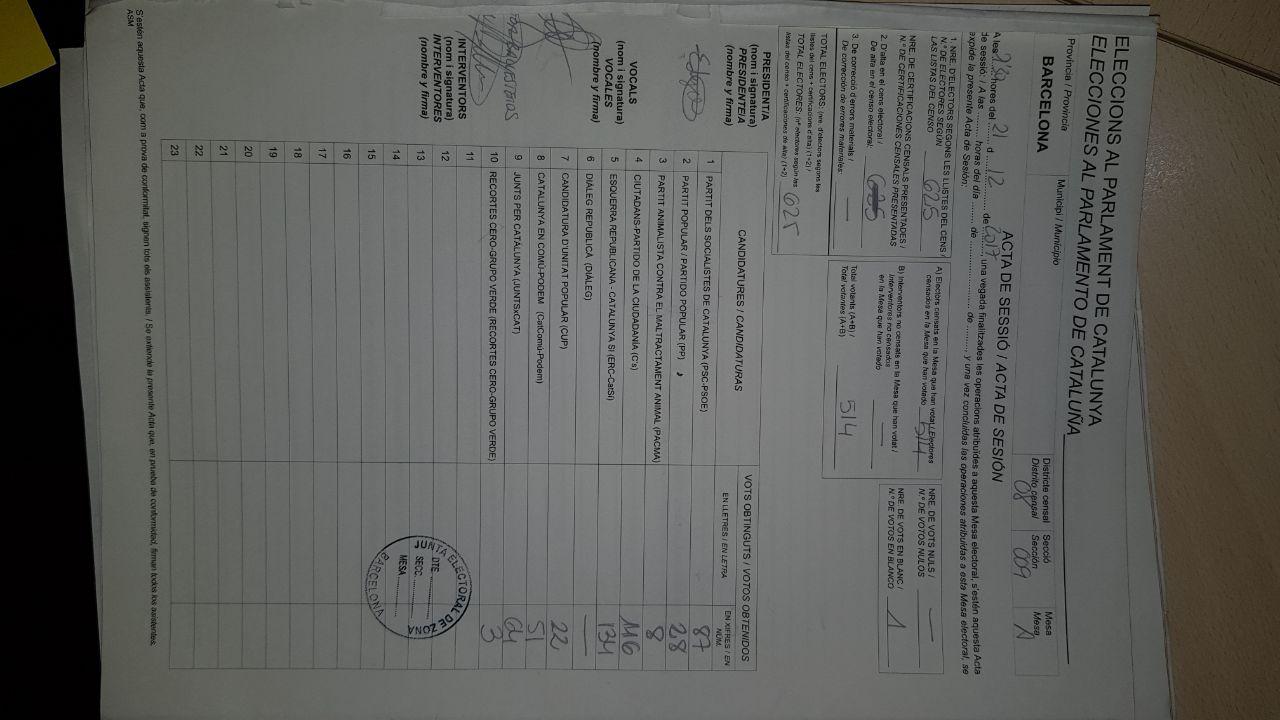 ELECCIONS AL PARLAMENT DE CATALUNYA
ELECCIONES AL PARLAMENTO DE CATALUÑA
Província / Provincia
BARCELONA
Municipi / Municipio
Districte censal
Distrito censal
08
Secció
Sección
009
Mesa
Mesa
A
ACTA DE SESSIÓ / ACTA DE SESIÓN
A les hores del 21 d 12 de 2017, una vegada finalitzades les operacions atribuïdes a aquesta Mesa electoral, s'estén aquesta Acta
de sessió: / A las ........ horas del día ........ de ........................ de ........, y una vez concluidas las operaciones atribuidas a esta Mesa electoral, se
expide la presente Acta de Sesión:
1. NRE. D'ELECTORS SEGONS LES LLISTES DEL CENS /
N.º DE ELECTORES SEGÚN
LAS LISTAS DEL CENSO 625
NRE. DE CERTIFICACIONS CENSALS PRESENTADES /
N.º DE CERTIFICACIONES CENSALES PRESENTADAS
2. D'alta en el cens electoral /
De alta en el censo electoral:
3. De correcció d'errors materials /
De corrección de errores materiales: —
TOTAL ELECTORS: (nre. d'electors segons les
llistes del cens + certificacions d'alta) (1+2) /
TOTAL ELECTORES: (nº electores según las
listas del censo + certificaciones de alta) (1+2) 625
A) Electors censats en la Mesa que han votat / Electores
censados en la Mesa que han votado 514
B) Interventors no censats en la Mesa que han votat /
Interventores no censados
en la Mesa que han votado —
Total votants (A+B) /
Total votantes (A+B) 514
NRE. DE VOTS NULS /
N.º DE VOTOS NULOS —
NRE. DE VOTS EN BLANC /
N.º DE VOTOS EN BLANCO 1
PRESIDENT/A
(nom i signatura)
PRESIDENTE/A
(nombre y firma)
VOCALS
(nom i signatura)
VOCALES
(nombre y firma)
INTERVENTORS
(nom i signatura)
INTERVENTORES
(nombre y firma)
CANDIDATURES / CANDIDATURAS
VOTS OBTINGUTS / VOTOS OBTENIDOS
EN LLETRES / EN LETRA
EN XIFRES / EN NÚM.
1 PARTIT DELS SOCIALISTES DE CATALUNYA (PSC-PSOE) 87
2 PARTIT POPULAR / PARTIDO POPULAR (PP) 28
3 PARTIT ANIMALISTA CONTRA EL MALTRACTAMENT ANIMAL (PACMA) 8
4 CIUTADANS-PARTIDO DE LA CIUDADANÍA (C's) 116
5 ESQUERRA REPUBLICANA - CATALUNYA SI (ERC-CatSí) 134
6 DIÀLEG REPUBLICÀ (DIÀLEG) —
7 CANDIDATURA D'UNITAT POPULAR (CUP) 22
8 CATALUNYA EN COMÚ-PODEM (CatComú-Podem) 51
9 JUNTS PER CATALUNYA (JUNTSxCAT) 64
10 RECORTES CERO-GRUPO VERDE (RECORTES CERO-GRUPO VERDE) 3
11
12
13
14
15
16
17
18
19
20
21
22
23
JUNTA ELECTORAL DE ZONA
DTE.
SECC.
MESA
BARCELONA
S'estén aquesta Acta que, com a prova de conformitat, signen tots els assistents. / Se extiende la presente Acta que, en prueba de conformidad, firman todos los asistentes.
ASM